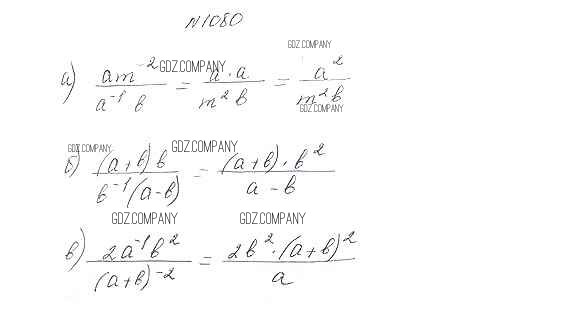 N1080
GDZ.COMPANY
а) am⁻² / a⁻¹ b = a · a / m² b = a² / m² b
GDZ.COMPANY
GDZ.COMPANY
GDZ.COMPANY GDZ.COMPANY
б) (a+b) b / b⁻¹ (a-b) = (a+b) · b² / a - b
GDZ.COMPANY GDZ.COMPANY
в) 2a⁻¹b² / (a+b)⁻² = 2b² · (a+b)² / a